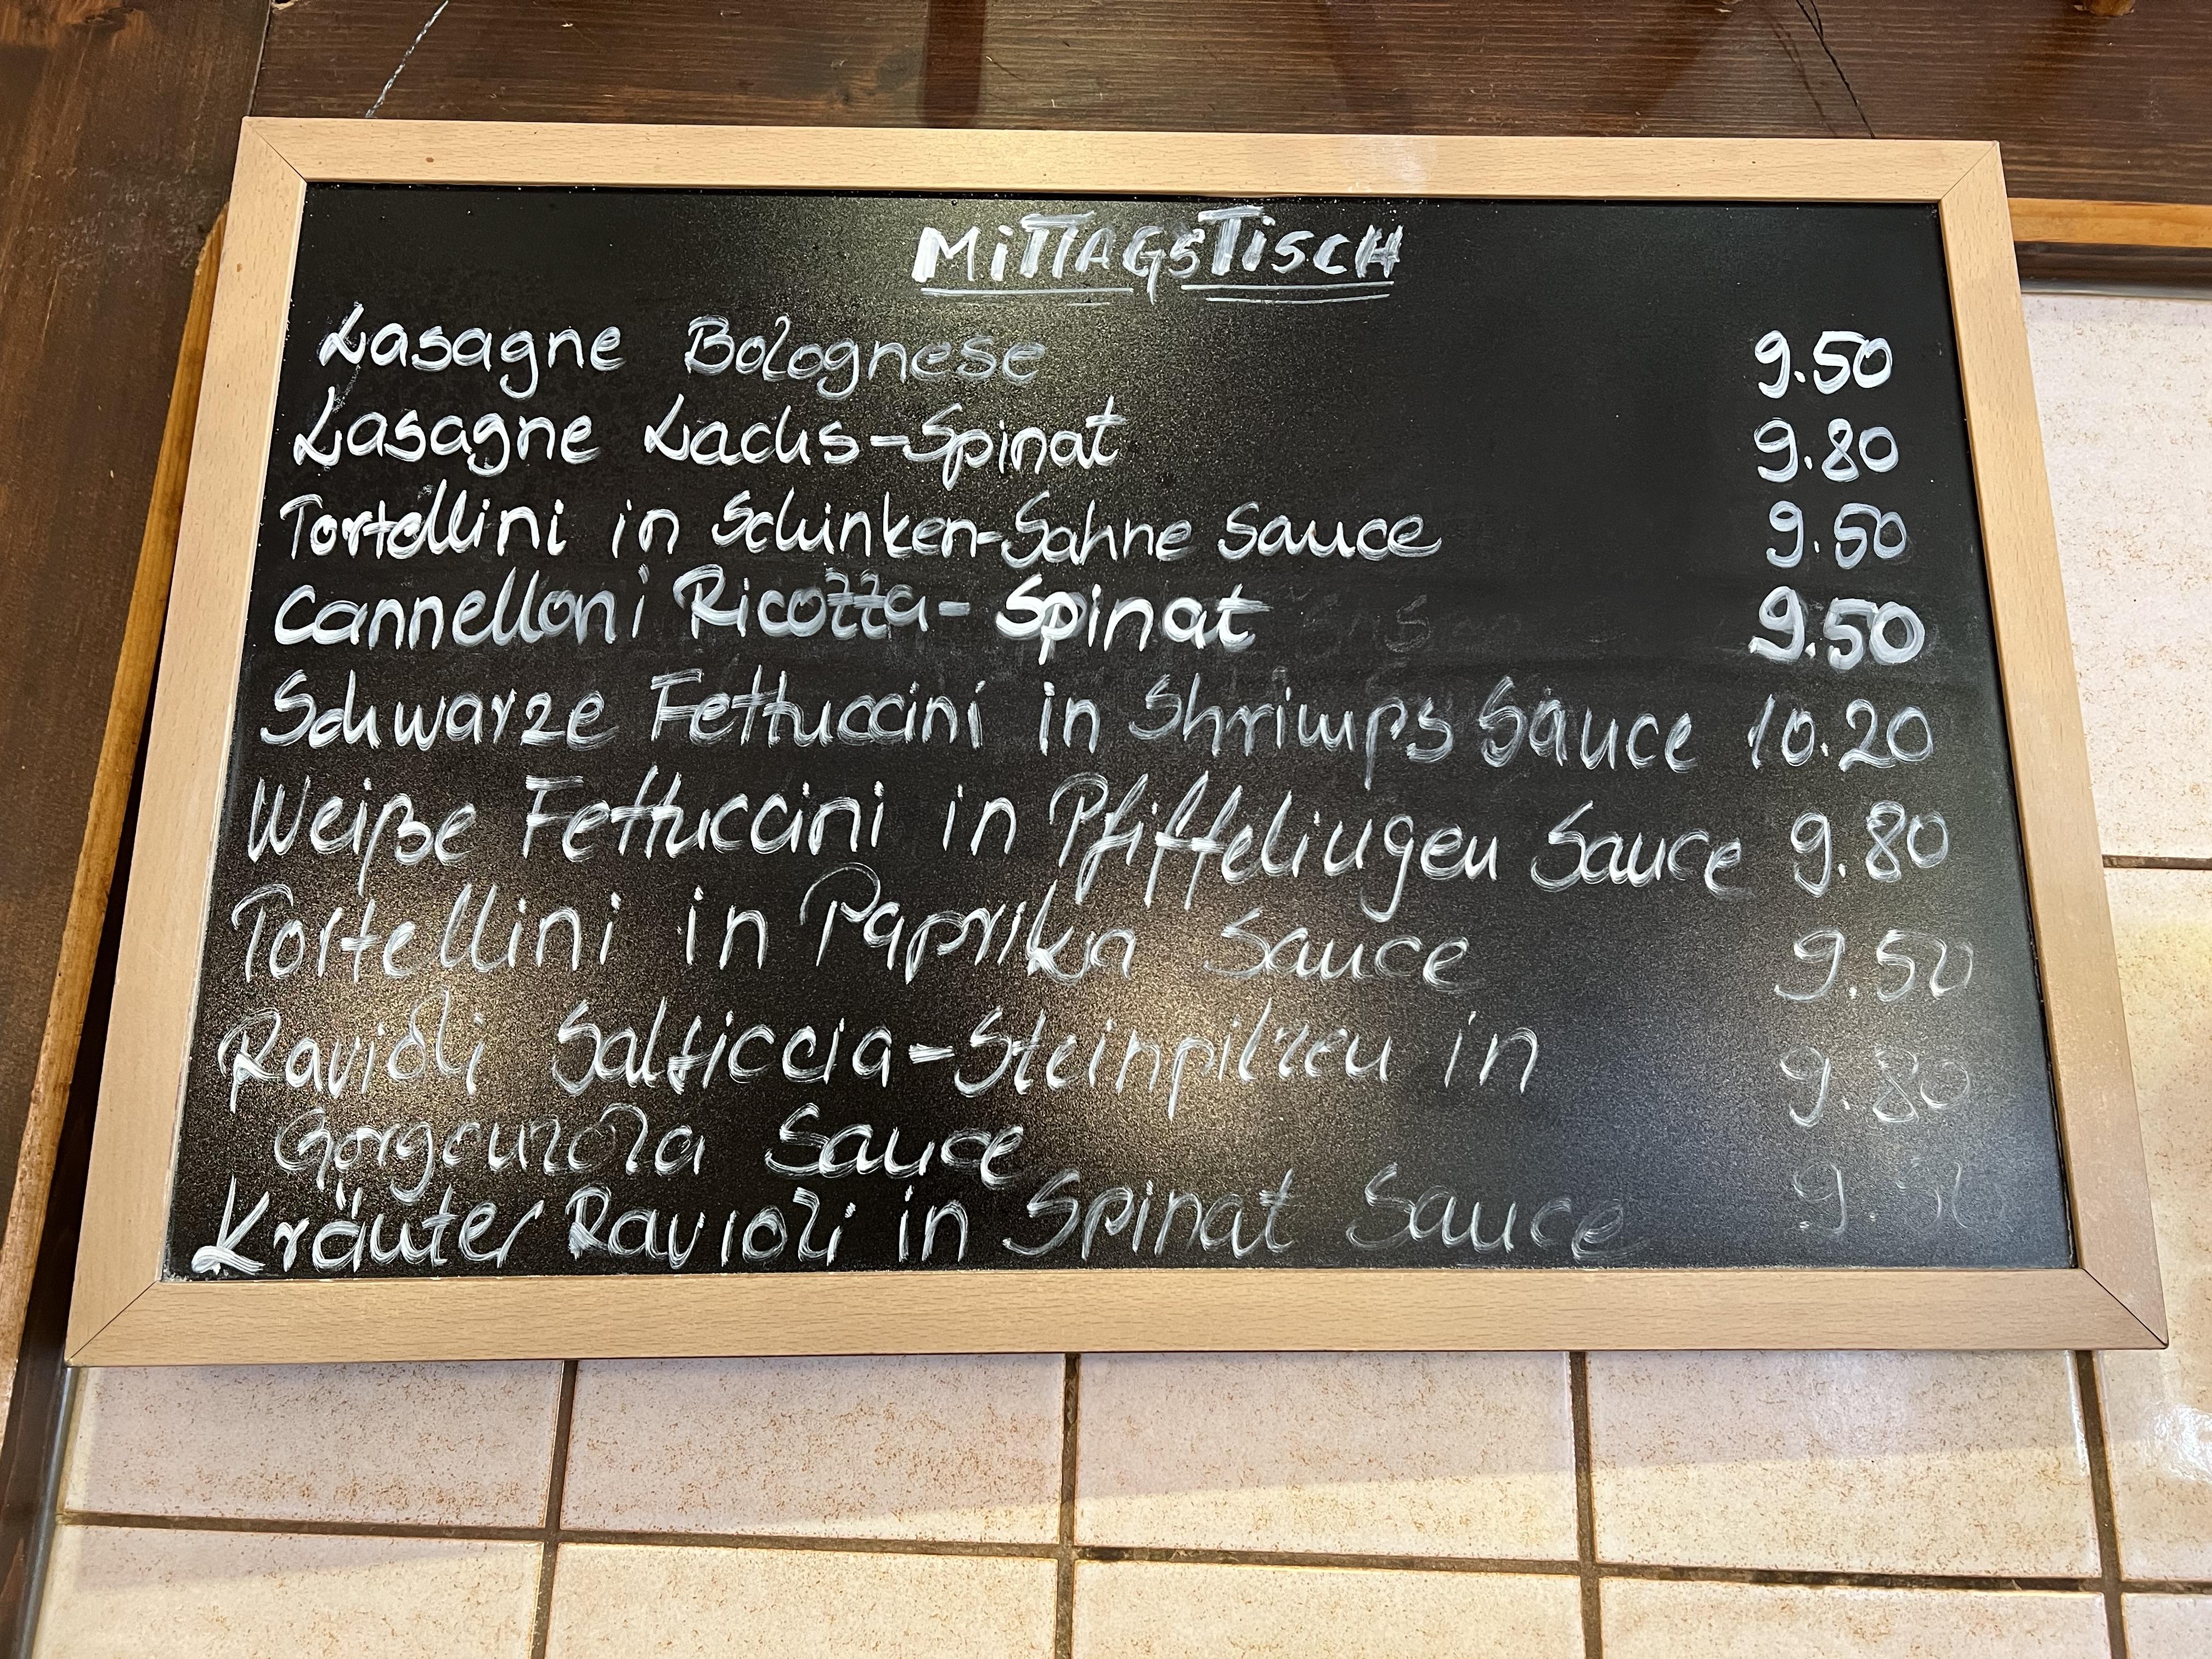 MITTAGSTISCH
Lasagne Bolognese 9.50
Lasagne Lachs-Spinat 9.80
Tortellini in Schinken-Sahne Sauce 9.50
Cannelloni Ricotta-Spinat 9.50
Schwarze Fettuccini in Shrimps Sauce 10.20
Weiße Fettuccini in Pfiffelingen Sauce 9.80
Tortellini in Paprika Sauce 9.50
Ravioli Salsiccia-Steinpilzen in 9.80
Gorgonzola Sauce
Kräuter Ravioli in Spinat Sauce